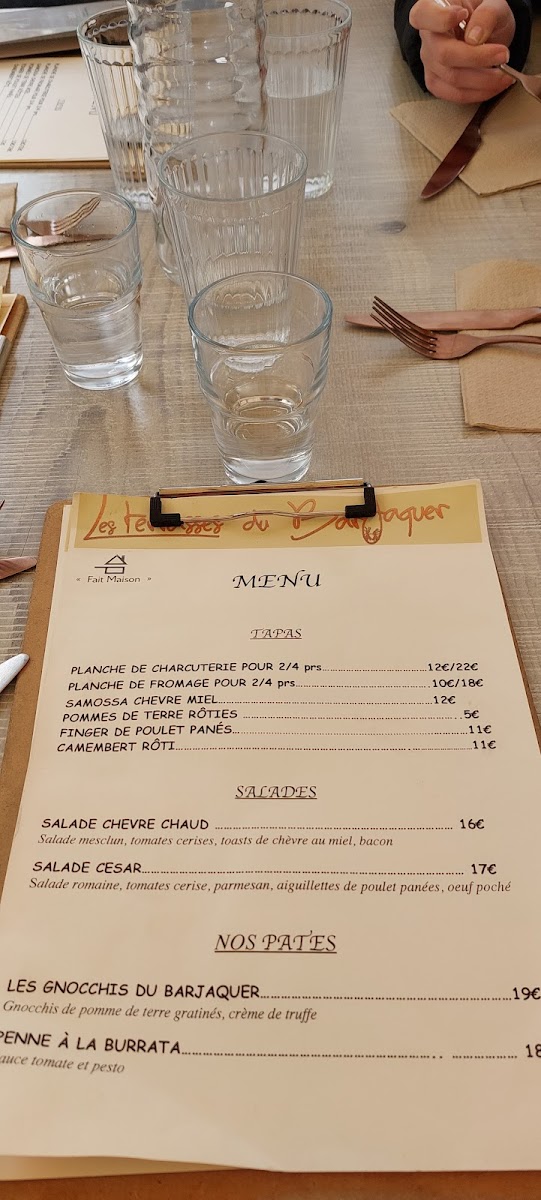 Les terrasses du Barjaquer
« Fait Maison »
MENU
TAPAS
PLANCHE DE CHARCUTERIE POUR 2/4 prs..............................12€/22€
PLANCHE DE FROMAGE POUR 2/4 prs..............................10€/18€
SAMOSSA CHEVRE MIEL..............................12€
POMMES DE TERRE RÔTIES ..............................5€
FINGER DE POULET PANÉS..............................11€
CAMEMBERT RÔTI..............................11€
SALADES
SALADE CHEVRE CHAUD .............................. 16€
Salade mesclun, tomates cerises, toasts de chèvre au miel, bacon
SALADE CESAR.............................. 17€
Salade romaine, tomates cerise, parmesan, aiguillettes de poulet panées, oeuf poché
NOS PATES
LES GNOCCHIS DU BARJAQUER..............................19€
Gnocchis de pomme de terre gratinés, crème de truffe
PENNE À LA BURRATA.............................. 18
auce tomate et pesto